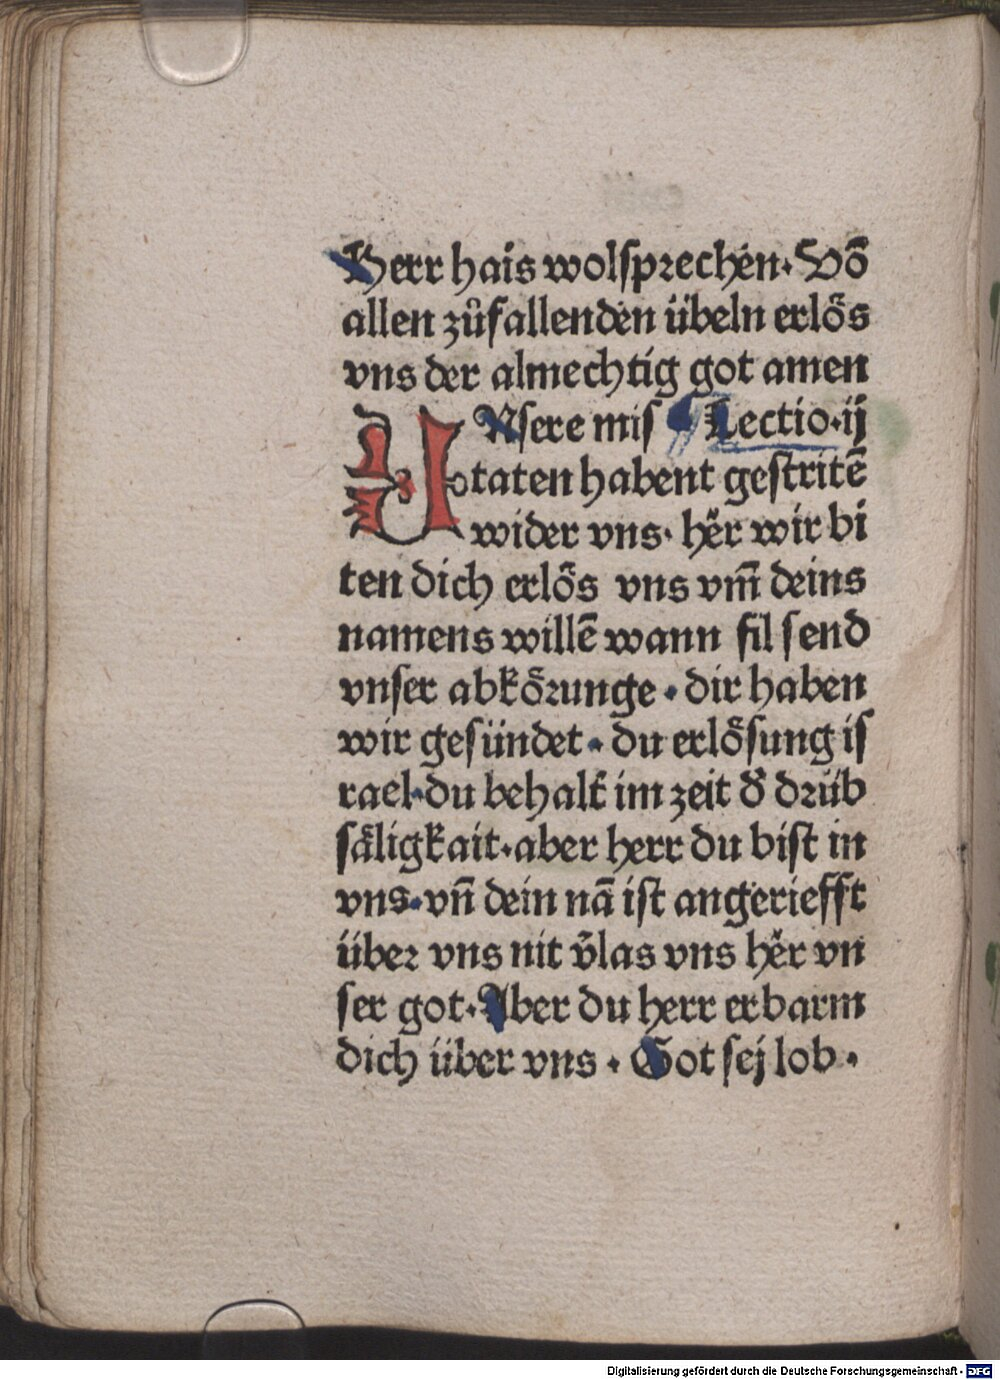 Herr hais wolsprechen· Võ
allen zůfallenden übeln erlös
vns der almechtig got amen
VNsere mis ¶ Lectio·ij
taten habent gestritẽ
wider vns· hër wir bi
ten dich erlös vns vm̃ deins
namens willẽ wann fil send
vnser abkörunge· dir haben
wir gesündet· du erlösung is
rael·du behalt im zeit d̕ drüb
säligkait·aber herr du bist in
vns·vñ dein nã ist angeriefft
über vns nit v̕las vns hër vn
ser got·Aber du herr erbarm
dich über vns· Got sej lob·
Digitalisierung gefördert durch die Deutsche Forschungsgemeinschaft - DFG